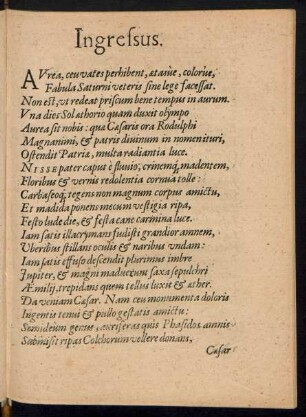 Ingressus.
AVrea, ceu vates perhibent, ætasúe, colorúe,
Fabula Saturni veteris sine lege facessat.
Non est, vt redeat priscum bene tempus in aurum.
Vna dies Sol athorio quam duxit olympo
Aurea sit nobis: qua Cæsaris ora Rodulphi
Magnanimi, & patris diuinum in nomen ituri,
Ostendit Patria, multa radiantia luce.
NISSE pater caput è fluuio, crinemq; madentem,
Floribus & vernis redolentia cornua tolle:
Carbaseoq; tegens non magnum corpus amictu,
Et madida ponens mecum vestigia ripa,
Festo lude die, & festa cane carmina luce.
Iam satis illacrymans fudisti grandior amnem,
Vberibus stillans oculis & naribus vndam:
Iam satis effuso descendit plurimus imbre
Jupiter, & magni maduerunt saxa sepulchri
Æmilij, trepidans quem tellus luxit & æther.
Da veniam Cæsar. Nam ceu monumenta doloris
Ingentis tenui & pullo gestatis amictu:
Semideûm genus, aurigeras quis Phasidos amnis
Submisit ripas Colchorum vellere donans,
Cæsar